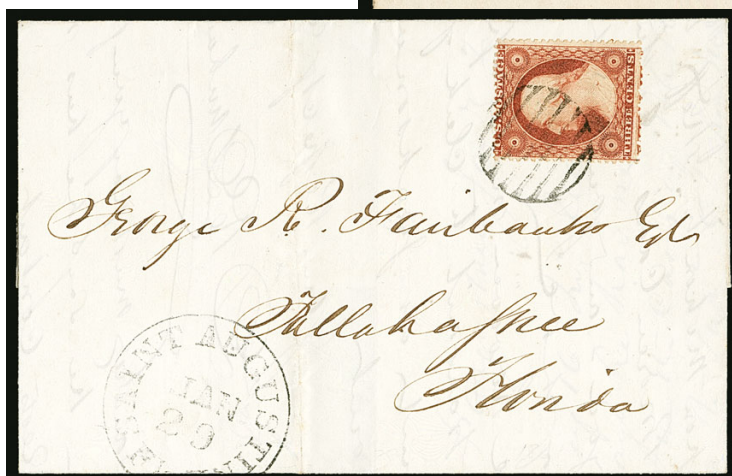 U.S. POSTAGE
THREE CENTS
George R. Fairbanks Esq
Tallahassee
Florida
SAINT AUGUSTIN
JAN
29